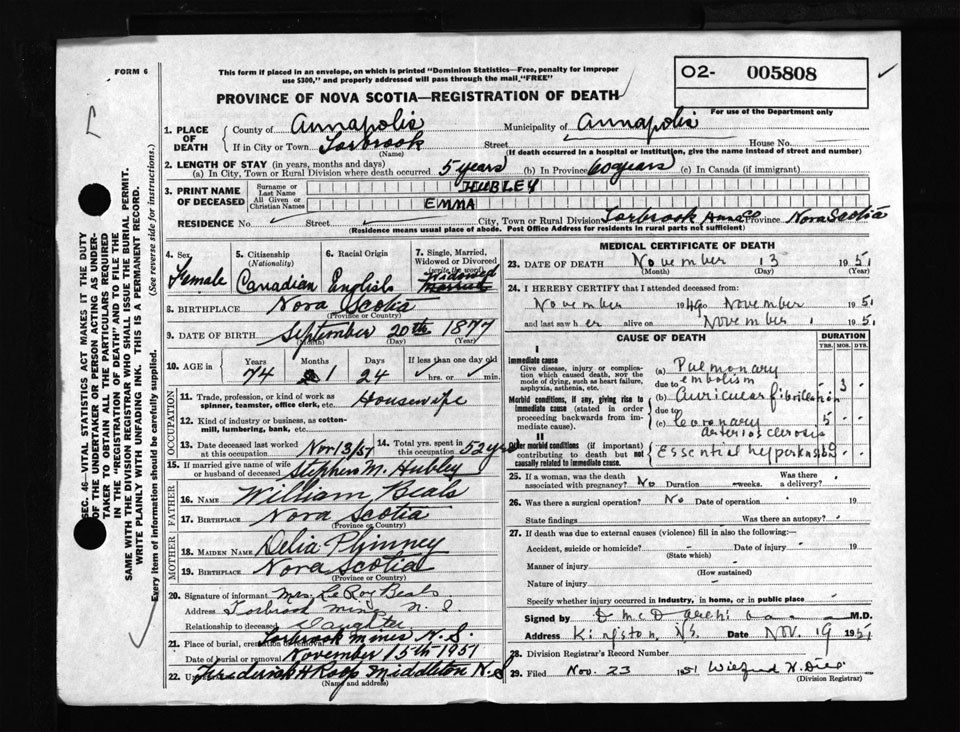 FORM 6
This form if placed in an envelope, on which is printed "Dominion Statistics—Free, penalty for improper
use $300," and properly addressed will pass through the mail "FREE"
O2- 005808
For use of the Department only
PROVINCE OF NOVA SCOTIA—REGISTRATION OF DEATH
SEC. 46—VITAL STATISTICS ACT MAKES IT THE DUTY
OF THE UNDERTAKER OR PERSON ACTING AS UNDER-
TAKER TO OBTAIN ALL THE PARTICULARS REQUIRED
IN THE "REGISTRATION OF DEATH" AND TO FILE THE
SAME WITH THE DIVISION REGISTRAR WHO SHALL ISSUE THE BURIAL PERMIT.
WRITE PLAINLY WITH UNFADING INK. THIS IS A PERMANENT RECORD.
Every item of information should be carefully supplied. (See reverse side for instructions.)
1. PLACE OF DEATH County of Annapolis Municipality of Annapolis
If in City or Town Torbrook Street House No.
(Name) (If death occurred in a hospital or institution, give the name instead of street and number)
2. LENGTH OF STAY (in years, months and days)
(a) In City, Town or Rural Division where death occurred 5 years (b) In Province 60 years (c) In Canada (if immigrant)
3. PRINT NAME OF DECEASED Surname or Last Name HUBLEY
All Given or Christian Names EMMA
RESIDENCE No. Street City, Town or Rural Division Torbrook Province Nova Scotia
(Residence means usual place of abode. Post Office Address for residents in rural parts not sufficient)
4. Sex, Female
5. Citizenship (Nationality) Canadian
6. Racial Origin English
7. Single, Married, Widowed or Divorced (write the word) Widowed Married
8. BIRTHPLACE Nova Scotia
(Province or Country)
9. DATE OF BIRTH September 20th 1877
(Month) (Day) (Year)
10. AGE in Years Months Days If less than one day old
74 1 24 hrs. or min.
OCCUPATION
11. Trade, profession, or kind of work as
spinner, teamster, office clerk, etc. Housewife
12. Kind of industry or business, as cotton-
mill, lumbering, bank, etc.
13. Date deceased last worked at this occupation Nov 13/51 14. Total yrs. spent in this occupation 52 yrs
15. If married give name of wife
or husband of deceased Stephen M. Hubley
FATHER
16. NAME William Beals
17. BIRTHPLACE Nova Scotia
(Province or Country)
MOTHER
18. MAIDEN NAME Delia Phinney
19. BIRTHPLACE Nova Scotia
(Province or Country)
20. Signature of informant Mrs. LeRoy Beals
Address Torbrook Mines N.S.
Relationship to deceased Daughter
21. Place of burial, cremation or removal Torbrook Mines N.S.
Date of burial or removal November 15th 1951
22. Undertaker Frederick H Roop Middleton N.S
(Name and address)
MEDICAL CERTIFICATE OF DEATH
23. DATE OF DEATH November 13 1951
(Month) (Day) (Year)
24. I HEREBY CERTIFY that I attended deceased from:
November 1949 to November 1951
and last saw her alive on November 1951
CAUSE OF DEATH DURATION
YRS. MOS. DYS.
I
Immediate cause
Give disease, injury or complica-
tion which caused death, NOT the
mode of dying, such as heart failure,
asphyxia, asthenia, etc.
(a) Pulmonary embolism
due to
Morbid conditions, if any, giving rise to
immediate cause (stated in order
proceeding backwards from im-
mediate cause).
(b) Auricular fibrillation - 3 -
due to
(c) Coronary arteriosclerosis 5 - -
II
Other morbid conditions (if important)
contributing to death but not
causally related to immediate cause.
Essential hypertension
25. If a woman, was the death
associated with pregnancy? No Duration weeks. Was there a delivery?
26. Was there a surgical operation? No Date of operation 19
State findings Was there an autopsy?
27. If death was due to external causes (violence) fill in also the following:—
Accident, suicide or homicide? Date of injury 19
(State which)
Manner of injury
(How sustained)
Nature of injury
Specify whether injury occurred in industry, in home, or in public place
Signed by M.D.
Address Kingston, N.S. Date Nov. 19 1951
28. Division Registrar's Record Number
29. Filed Nov. 23 1951
(Division Registrar)